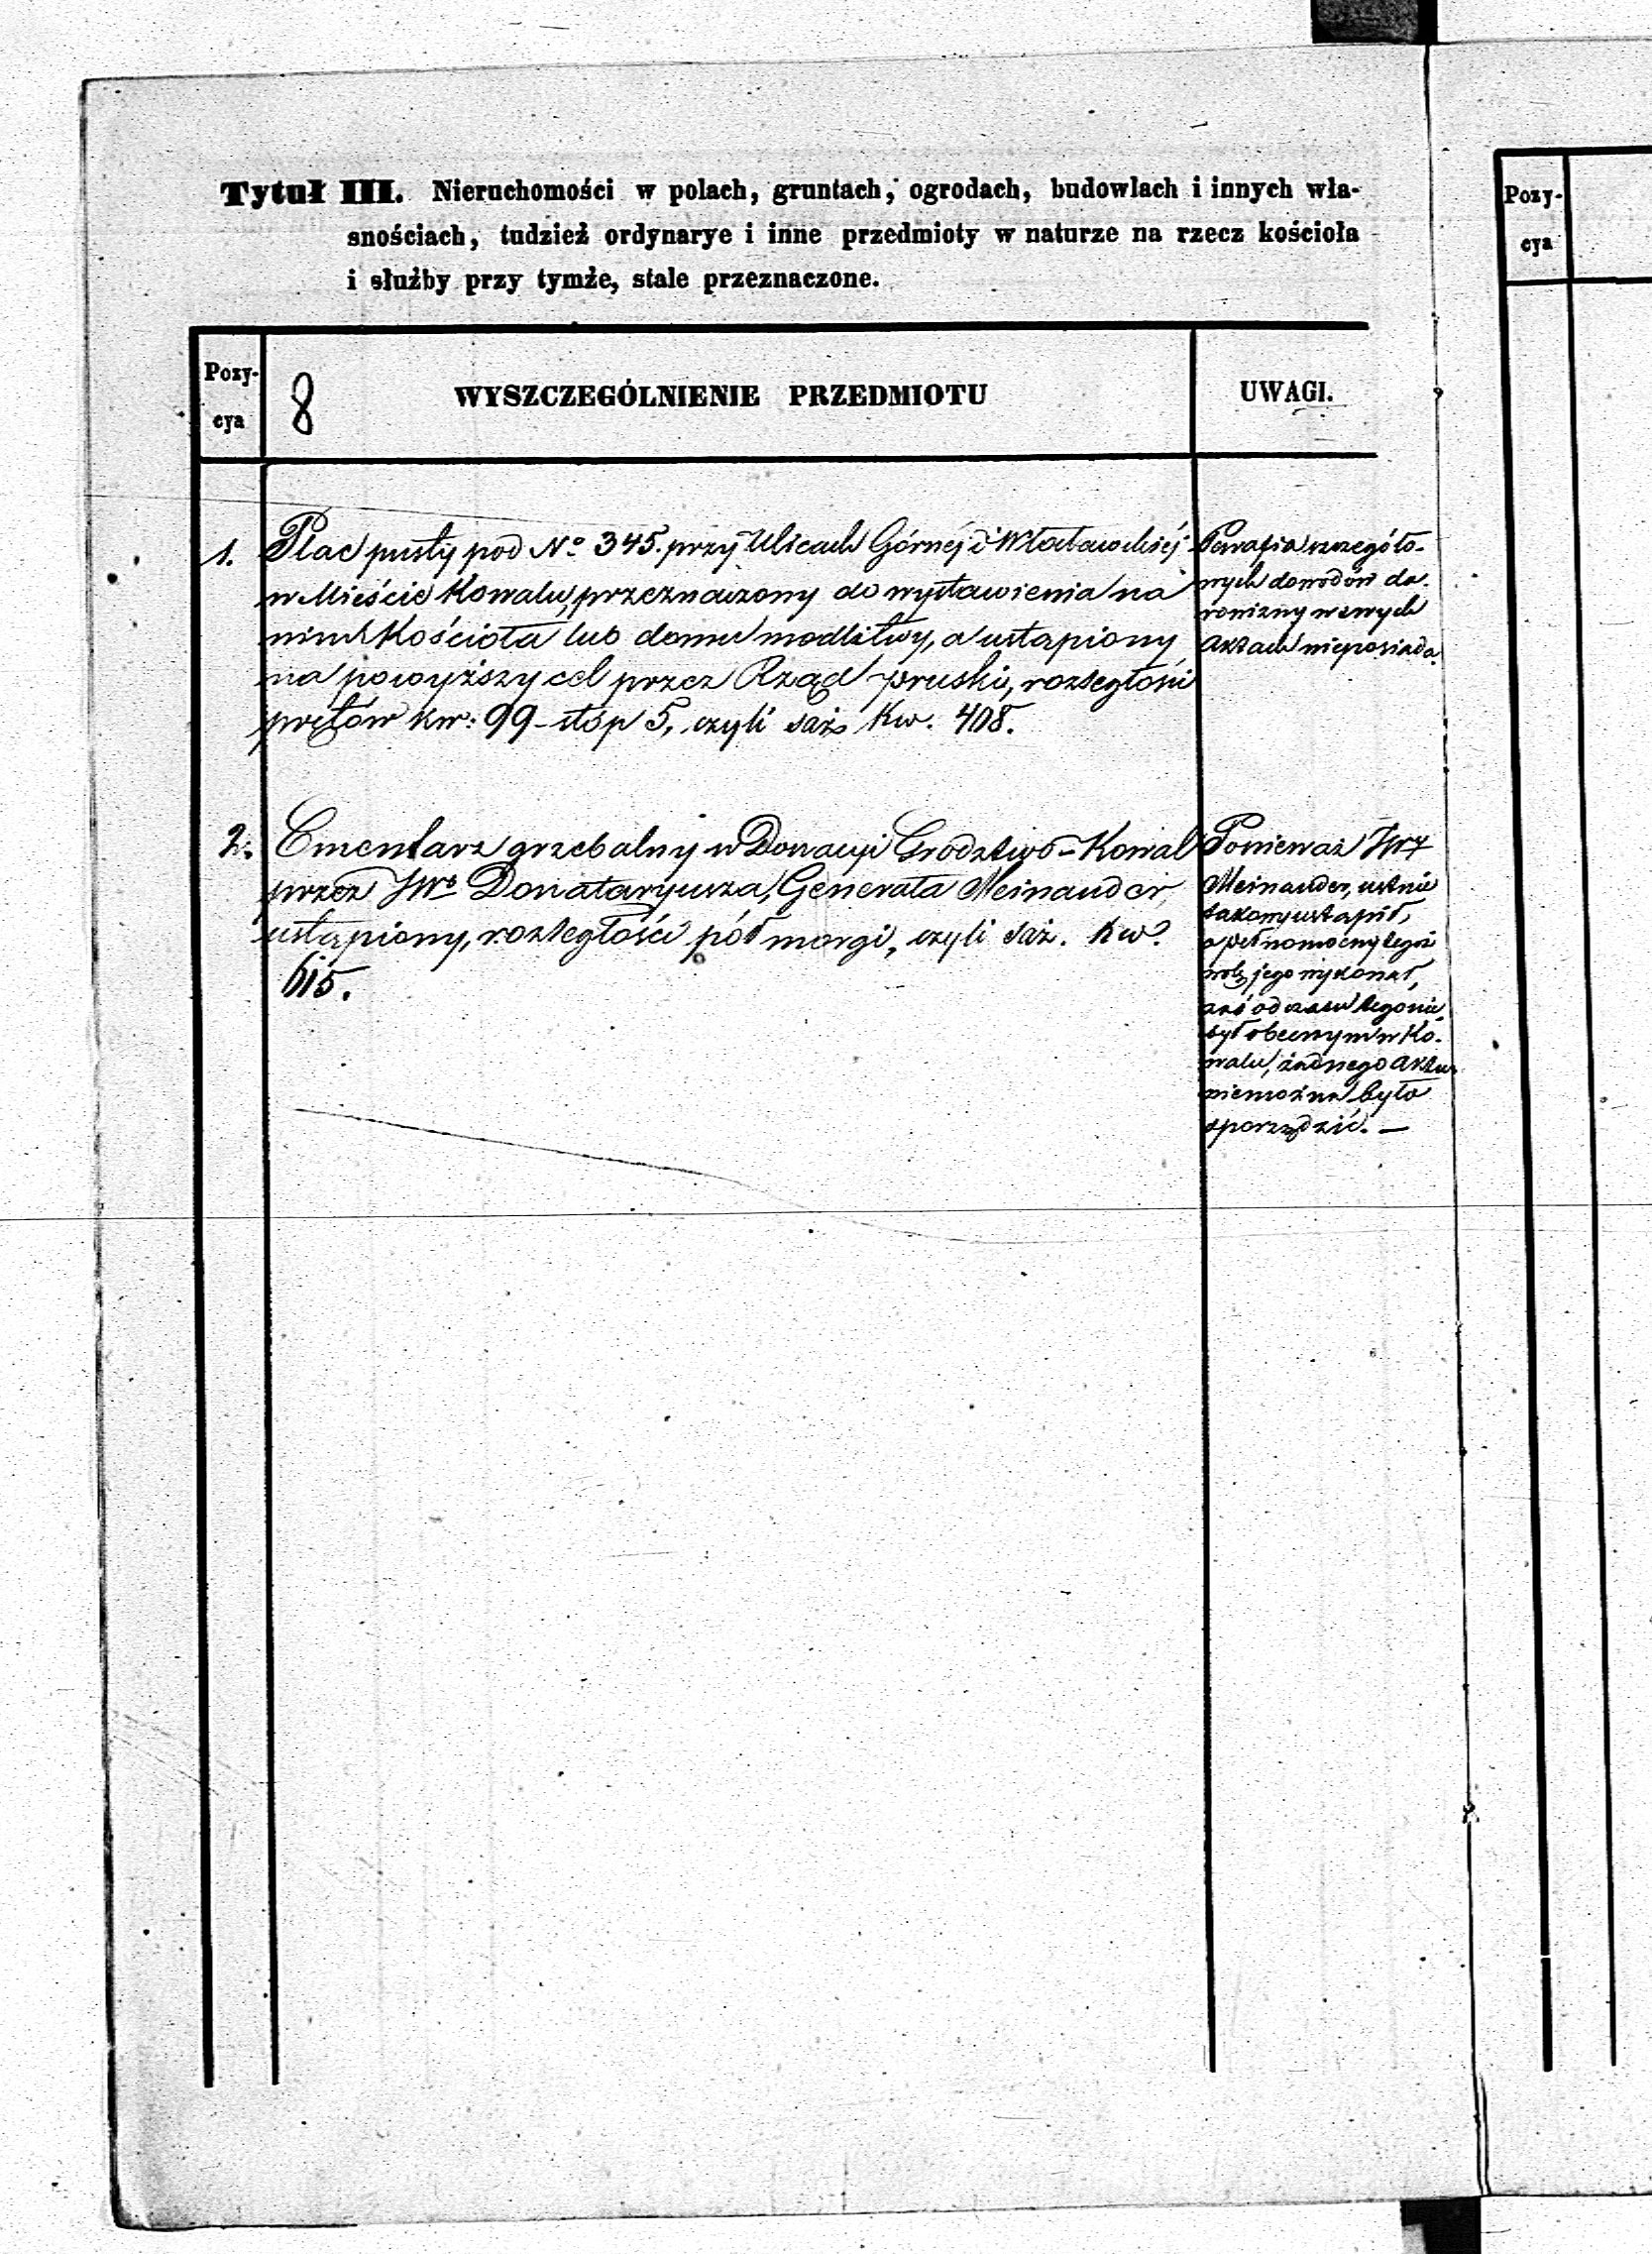 Tytuł III. Nieruchomości w polach, gruntach, ogrodach, budowlach i innych wła-
snościach, tudzież ordynarye i inne przedmioty w naturze na rzecz kościoła
i służby przy tymże, stale przeznaczone.
Pozy-
cya
8
WYSZCZEGÓLNIENIE PRZEDMIOTU
UWAGI.
1.
Plac pusty pod No 345. przy Ulicach Górnéj i Włocławskiéj
w Mieście Kowalu, przeznaczony do wystawienia na
nim Kościoła lub domu modlitwy, a ustąpiony
na powyższy cel przez Rząd pruski, rozległości
prętów kw: 99 - stóp 5, czyli saż. Kw. 408.
Parafia szczegóło-
wych dowodów da-
rowizny w swych
aktach nieposiada.
2.
Cmentarz grzebalny w Donacyi Grodztwo - Kowal
przez JWo Donataryusza, Generała Meinander,
ustąpiony, rozległości pół morgi, czyli saż. kw.
615.
Ponieważ JW
Meinander, ustnie
takowy ustąpił,
a pełnomocny tegoż
wolę jego wykonał,
zaś od czasu tego nie
był obecnym w Ko-
walu, żadnego aktu
niemożna było
sporządzić. —
Pozy-
cya